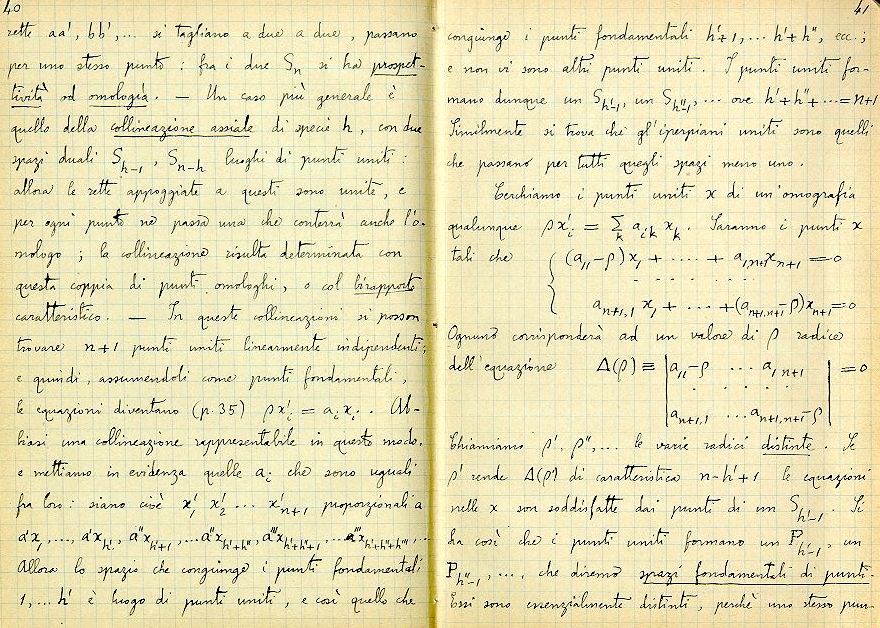 40
rette aa', bb', ... si tagliano a due a due, passano
per uno stesso punto : fra i due Sₙ si ha prospet-
tività od omologia. — Un caso più generale è
quello della collineazione assiale di specie h, con due
spazi duali S_{h-1}, S_{n-h} luoghi di punti uniti :
allora le rette appoggiate a questi sono unite, e
per ogni punto ne passa una che conterrà anche l'o-
mologo ; la collineazione risulta determinata con
questa coppia di punti omologhi, o col birapporto
caratteristico. — In queste collineazioni si posson
trovare n+1 punti uniti linearmente indipendenti;
e quindi, assumendoli come punti fondamentali,
le equazioni diventano (p. 35) ρx'_i = a_i x_i. Ab-
biasi una collineazione rappresentabile in questo modo,
e mettiamo in evidenza quelle a_i che sono uguali
fra loro : siano cioè x'_1 x'_2 ... x'_{n+1} proporzionali a
a'x_1, ..., a'x_{h'}, a''x_{h'+1}, ...a''x_{h'+h''}, a'''x_{h'+h''+1}, ...a'''x_{h'+h''+h'''}, ...
Allora lo spazio che congiunge i punti fondamentali
1, ... h' è luogo di punti uniti, e così quello che
41
congiunge i punti fondamentali h'+1, ... h'+h'', ecc.;
e non vi sono altri punti uniti. I punti uniti for-
mano dunque un S_{h'-1}, un S_{h''-1}, ... ove h'+h''+...=n+1
Similmente si trova che gl'iperpiani uniti sono quelli
che passano per tutti quegli spazi meno uno.
Cerchiamo i punti uniti x di un'omografia
qualunque ρx'_i = Σ_k a_{ik} x_k. Saranno i punti x
tali che { (a_{11}-ρ)x_1 + .... + a_{1,n+1}x_{n+1} = 0
. . . . . .
a_{n+1,1} x_1 + ... +(a_{n+1,n+1}-ρ)x_{n+1}=0
Ognuno corrisponderà ad un valore di ρ radice
dell'equazione Δ(ρ) ≡ | a_{11}-ρ ... a_{1,n+1} | = 0
. . . . .
a_{n+1,1} ... a_{n+1,n+1}-ρ
Chiamiamo ρ', ρ'', ... le varie radici distinte. Se
ρ' rende Δ(ρ') di caratteristica n-h'+1 le equazioni
nelle x son soddisfatte dai punti di un S_{h'-1}. Si
ha così che i punti uniti formano un P_{h'-1}, un
P_{h''-1}, ..., che diremo spazi fondamentali di punti.
Essi sono essenzialmente distinti, perchè uno stesso pun-